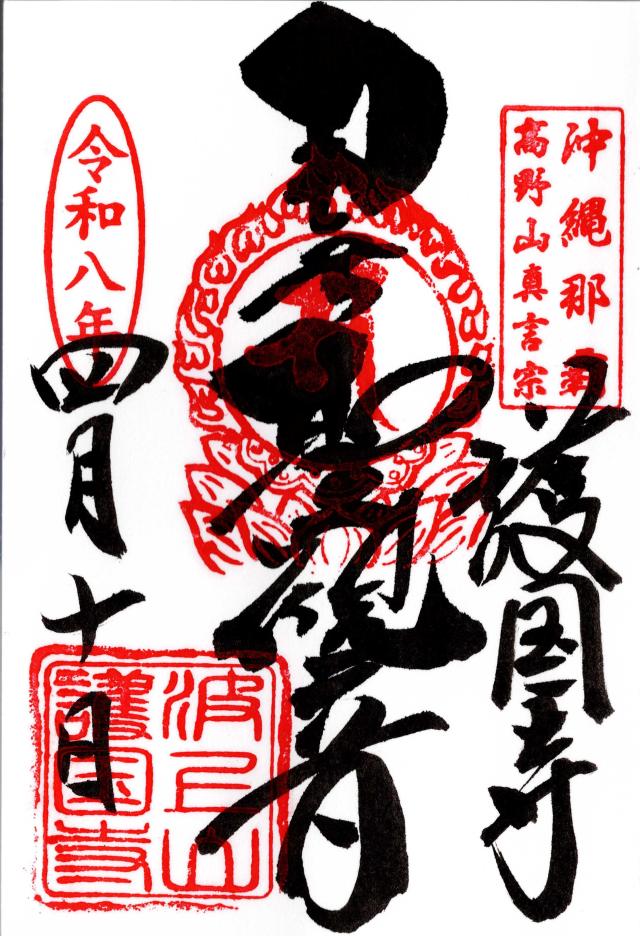 沖縄那覇
高野山真言宗
護国寺
聖観音
令和八年
四月十日
波上山
護国寺